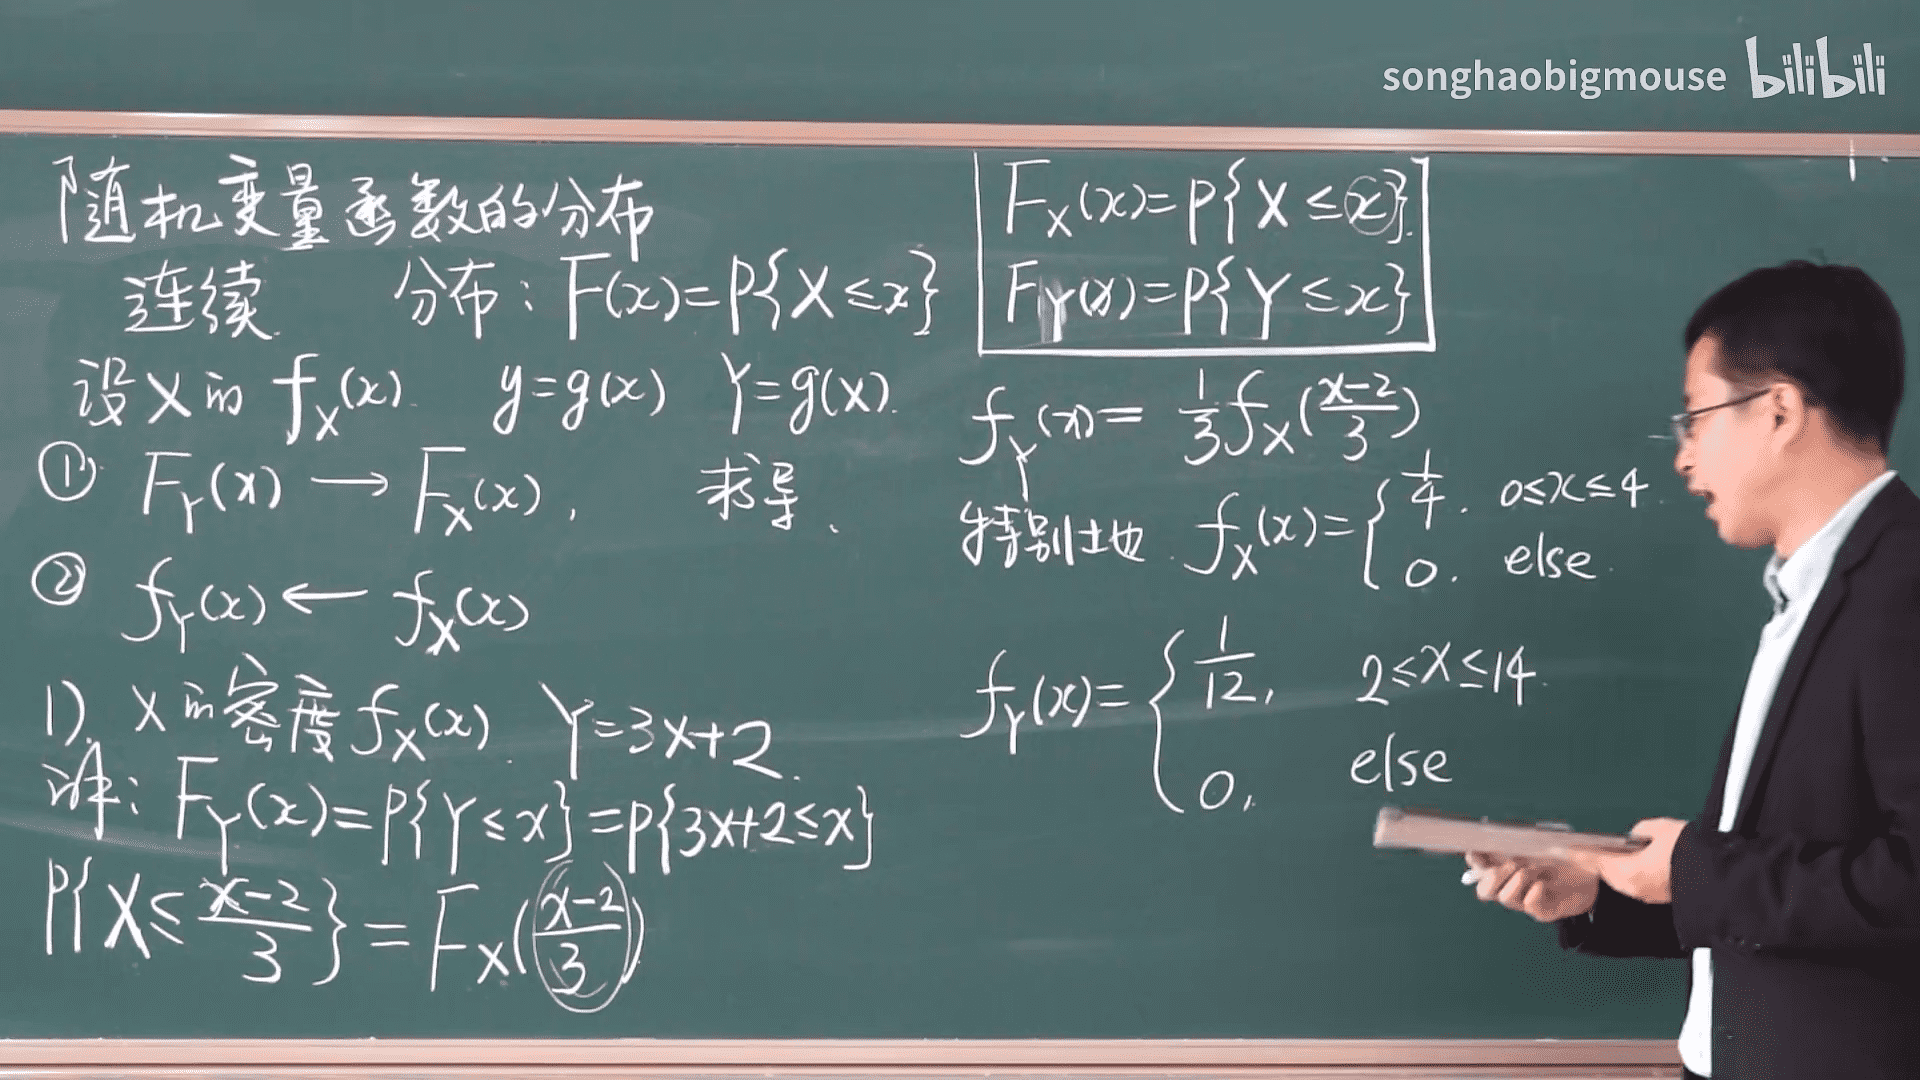 songhaobigmouse bilibili
随机变量函数的分布
连续 分布：F(x)=P{X≤x}
设X的 f_X(x) y=g(x) Y=g(X).
① F_Y(x) → F_X(x), 求导、
② f_Y(x) ← f_X(x)
1). X的密度 f_X(x). Y=3X+2.
证: F_Y(x)=P{Y≤x}=P{3X+2≤x}
P{X≤(x-2)/3}=F_X((x-2)/3)
F_X(x)=P{X≤x}.
F_Y(x)=P{Y≤x}
f_Y(x)= 1/3 f_X((x-2)/3)
特别地. f_X(x)={ 1/4. 0≤x≤4.
0. else.
f_Y(x)={ 1/12, 2≤x≤14.
0, else